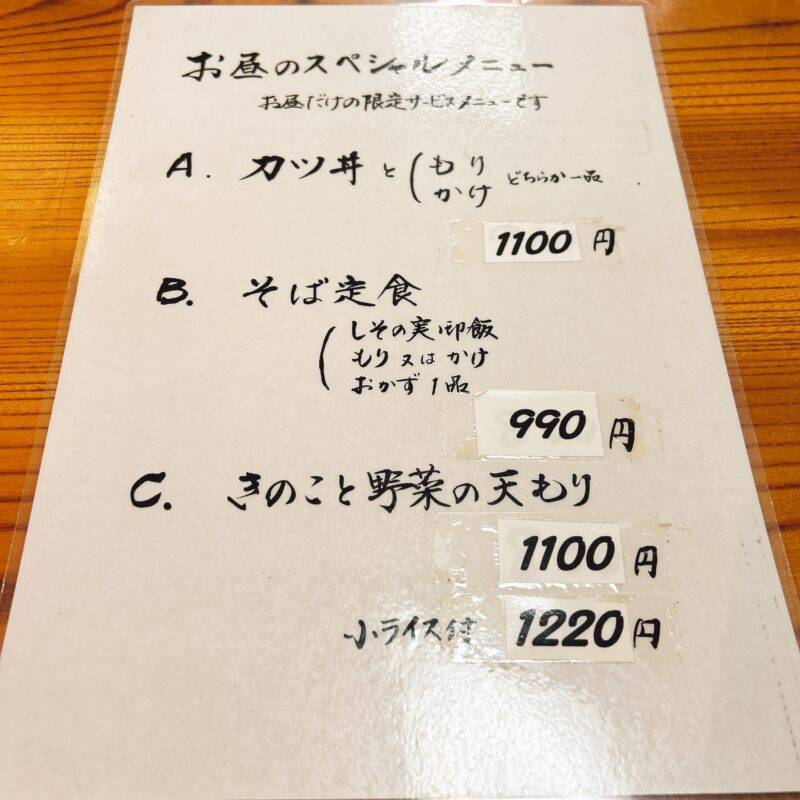 お昼のスペシャルメニュー
お昼だけの限定サービスメニューです
A. カツ丼と(もり
かけ どちらか一品
1100円
B. そば定食
(しその実御飯
もり又はかけ
おかず1品
990円
C. きのこと野菜の天もり
1100円
小ライス付 1220円